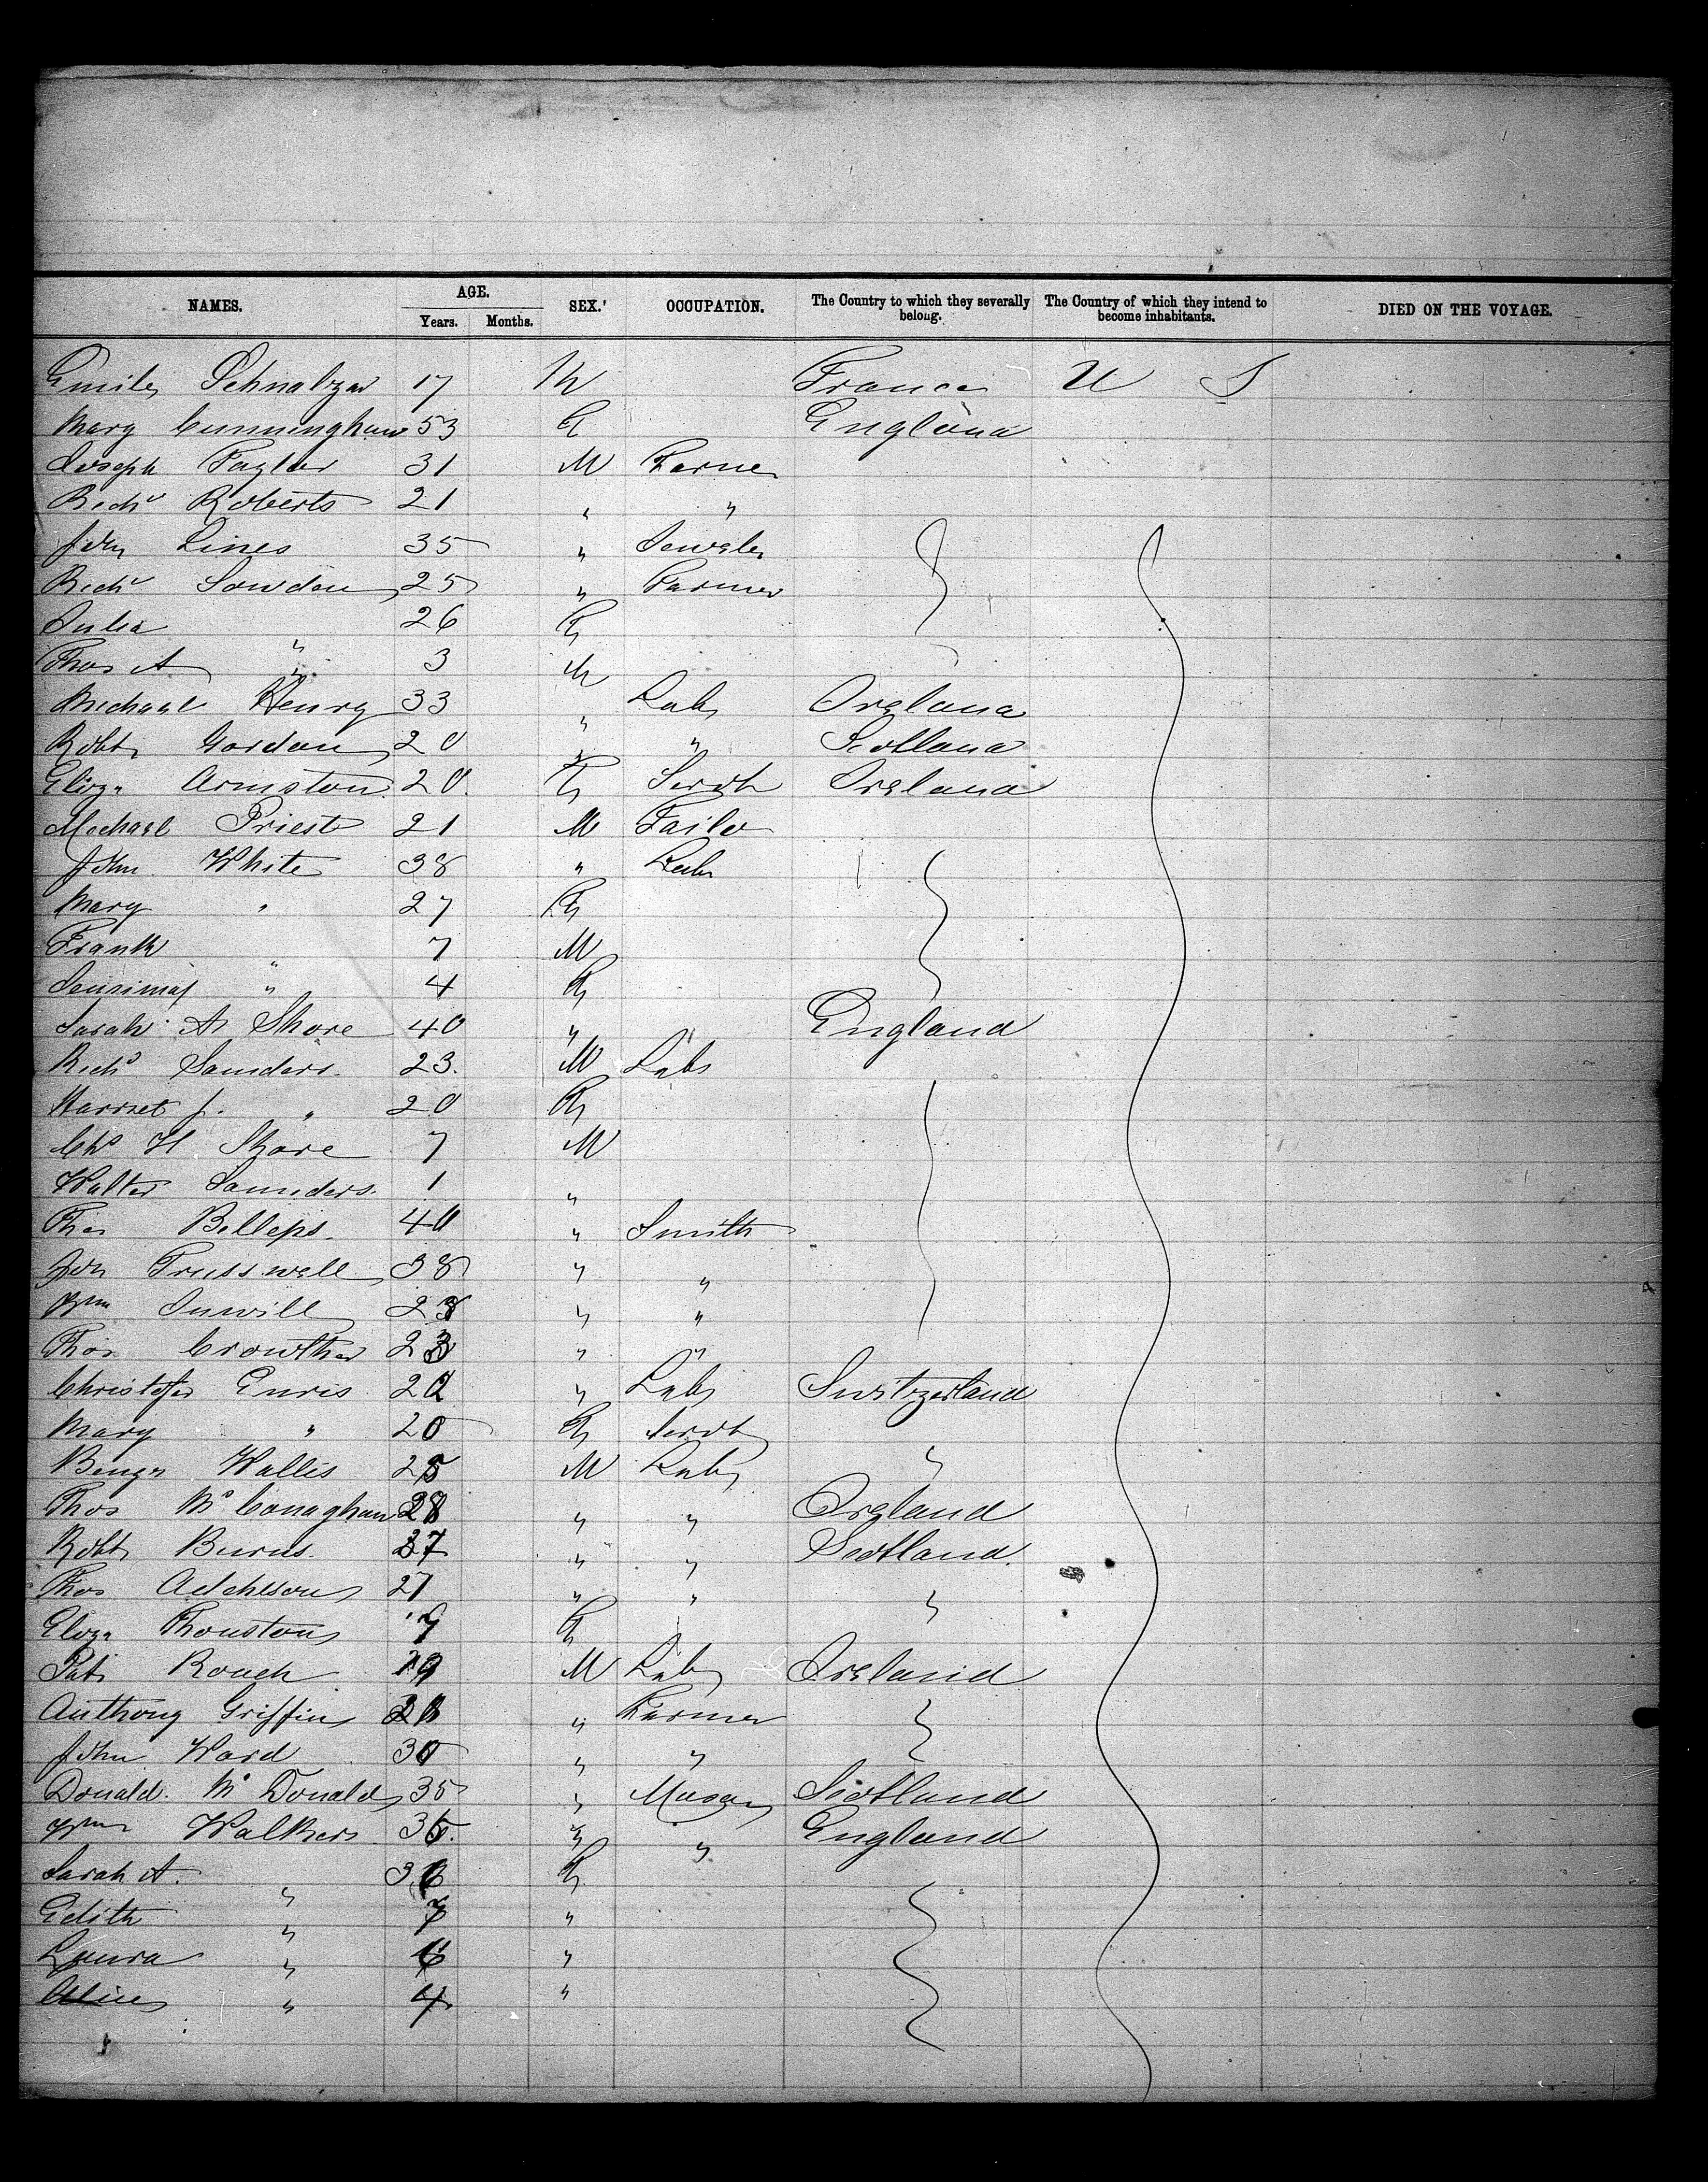 NAMES. AGE. Years. Months. SEX. OCCUPATION. The Country to which they severally belong. The Country of which they intend to become inhabitants. DIED ON THE VOYAGE.
Emile 17 M France U S
Mary Cunningham 53 F England
Joseph Taylor 31 M Farmer
Richd Roberts 21 " "
John Lines 35 " Jeweler
Richd Sowden 25 " Farmer
Julia " 26 F
Thos A " 3 M
Michael Henry 33 " Labr Ireland
Robt Gordon 20 " " Scotland
Eliza Armston 20 F Servt Ireland
Michael Priest 21 M Tailor
John White 38 " Labr
Mary " 27 F
Frank " 7 M
" 4 F
Sarah A Shore 40 " England
Richd Saunders 23 M Labr
Harriet J. " 20 F
Chs H Shore 7 M
Walter Saunders 1 "
Thos 40 " Smith
Jon Trusswell 38 " "
Wm " "
Thos Crowther 23 " "
Christofer " Labr Switzerland
Mary " 20 F Servt
Wallis 25 M Labr "
Thos McConaghan 28 " " Ireland
Robt Burns 37 " " Scotland
Thos 27 " " "
Eliza F
Pat Roach 19 M Labr Ireland
Anthony Griffin " Farmer
John Ward 30 " "
Donald McDonald 35 " Mason Scotland
Wm Walkers " " England
Sarah A. " F
Edith " 7 "
Laura " 6 "
" 4 "